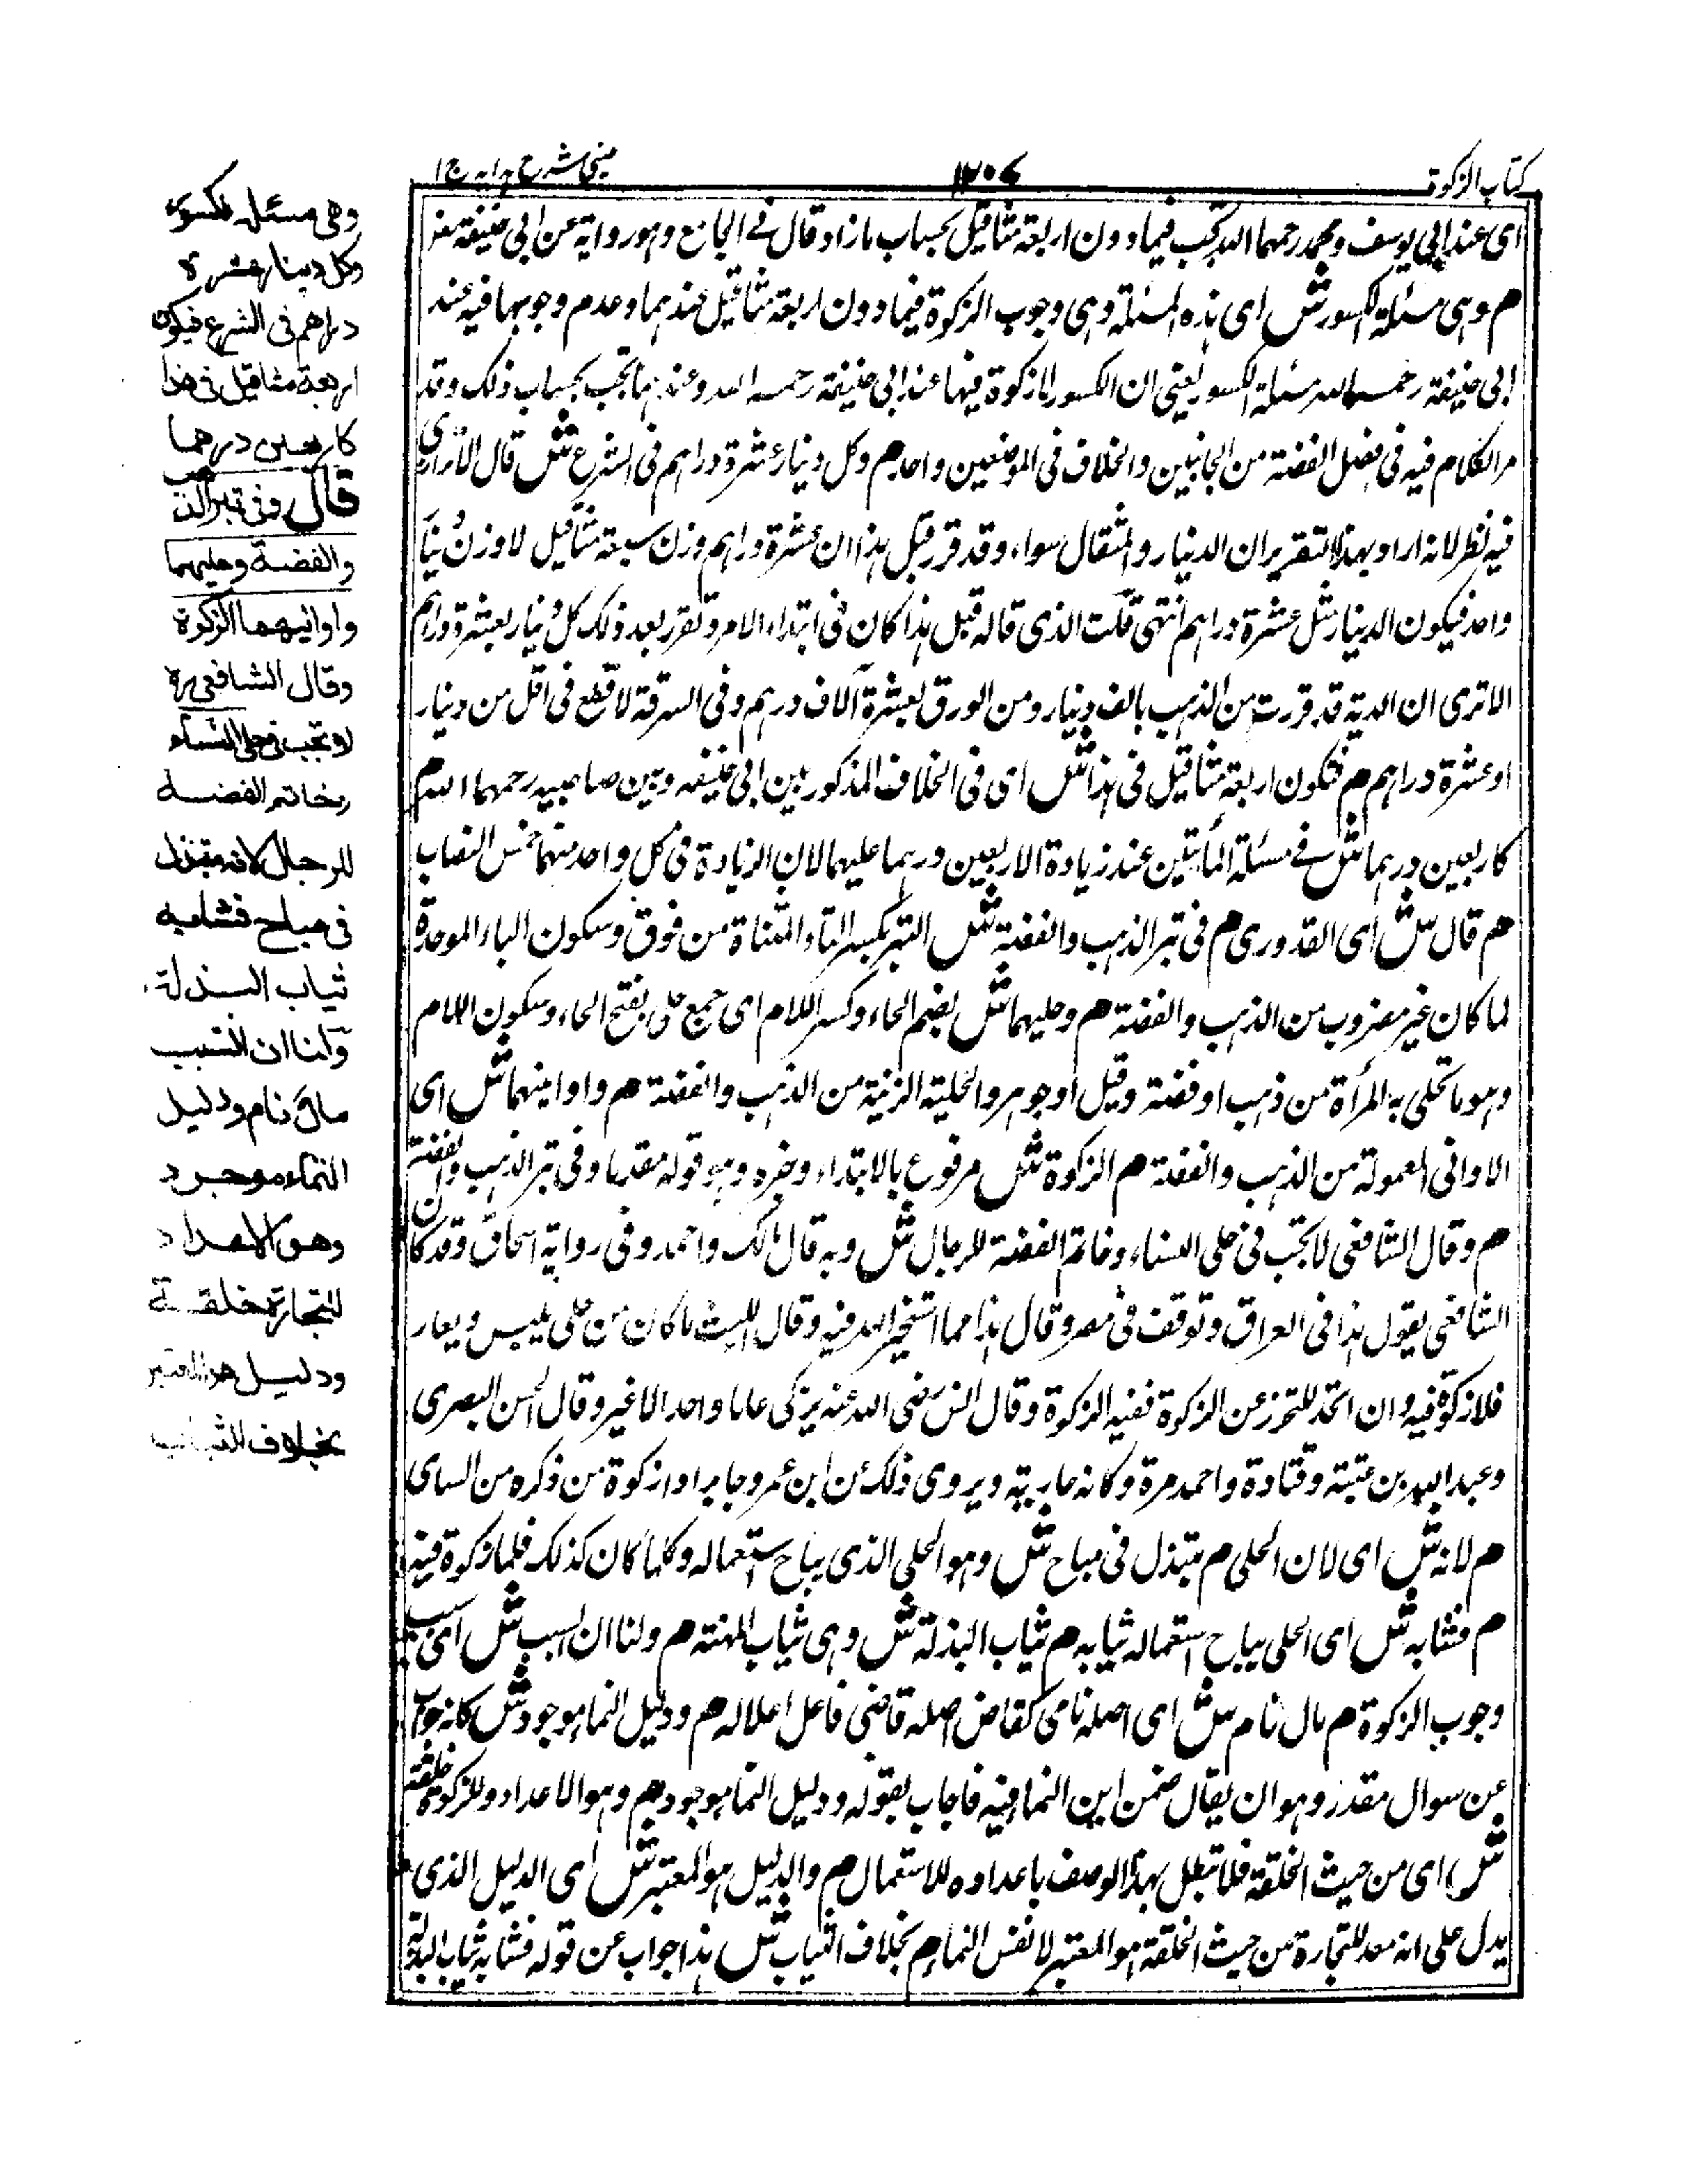 كتاب الزكوة
١٢٠٦
عينى شرح هدايه ج ١
اى عند ابى يوسف ومحمد رحمهما الله تجب فيما دون اربعة مثاقيل بحساب ما زاد قال فے الجامع وهو رواية عن ابى حنيفة
م وهى مسئلة الكسور ش اى هذه المسئلة وهى وجوب الزكوة فيما دون اربعة مثاقيل عندهما وعدم وجوبها فيه عند
ابى حنيفة رحمه الله مسئلة الكسور يعنى ان الكسور لا زكوة فيها عند ابى حنيفة رحمه الله وعندهما تجب بحساب ذلك وقد
مر الكلام فيه فى فصل الفضة من الجانبين والخلاف فى الموضعين واحد م وكل دينار عشرة دراهم فى الشرع ش قال الاترازى
فيه نظر لانه اراد بهذا التقرير ان الدينار والمثقال سواء وقد قرر قبل هذا ان عشرة دراهم وزن سبعة مثاقيل لا وزن دينار
واحد فيكون الدينار مثل عشرة دراهم انتهى قلت الذى قاله قبل هذا كان فى ابتداء الامر وتقرر بعد ذلك كل دينار بعشرة دراهم
الا ترى ان الدية قد قررت من الذهب بالف دينار ومن الورق بعشرة آلاف درهم وفى السرقة لا قطع فى اقل من دينار
او عشرة دراهم م فتكون اربعة مثاقيل فى هذا ش اى فى الخلاف المذكور بين ابى حنيفه وبين صاحبيه رحمهما الله م
كاربعين درهما ش فے مسئلة المأتين عند زيادة الاربعين درهما عليهما لان الزيادة فى كل واحد منهما خمس النصاب
م قال ش اى القدورى م فى تبر الذهب والفضة ش التبر بكسر التاء المثناة من فوق وسكون الباء الموحدة
لما كان غير مضروب من الذهب والفضة م وحليهما ش بضم الحاء وكسر اللام اى جمع حلى بفتح الحاء وسكون اللام
وهو ما تحلى به المرأة من ذهب او فضة وقيل او جوهر والحلية الزينة من الذهب والفضة م واوانيهما ش اى
الاوانى المعمولة من الذهب والفضة م الزكوة ش مرفوع بالابتداء وخبره وهو قوله مقدما وفى تبر الذهب والفضة
م وقال الشافعى لا تجب فى حلى النساء وخاتم الفضة للرجال ش وبه قال مالك واحمد وفى رواية اسحاق وقد كان
الشافعى يقول هذا فى العراق وتوقف فى مصر وقال هذا مما استخير الله فيه وقال الليث ما كان من حلى يلبس ويعار
فلا زكوة فيه وان اتخذ للتحرز عن الزكوة ففيه الزكوة وقال انس رضى الله عنه يزكى عاما واحدا لا غير وقال الحسن البصرى
وعبد الله بن عتبة وقتادة واحمد مرة وكانه عاريته ويروى ذلك عن ابن عمر وجابر
م لانه ش اى لان الحلى م مبتذل فى مباح ش وهو الحلى الذى يباح استعماله وكلما كان كذلك فلا زكوة فيه
م فشابه ش اى الحلى يباح استعماله ثيابه م ثياب البذلة ش وهى ثياب المهنة م ولنا ان السبب ش اى سبب
وجوب الزكوة م مال نام ش اى اصله نامى كقاض اصله قاضى فاعل اعلاله م ودليل النماء موجود ش كانه جواب
عن سوال مقدر وهو ان يقال ضمن اين النماء فيه فاجاب بقوله ودليل النماء موجود م وهو الاعداد وللزكوة خلقة
ش اى من حيث الخلقة فلا تبطل بهذا الوصف باعداده للاستعمال م والدليل هو المعتبر ش اى الدليل الذى
يدل على انه معد للتجارة من حيث الخلقة هو المعتبر لا نفس النماء م بخلاف الثياب ش هذا جواب عن قوله فشابه ثياب البذلة
وهى مسئلة الكسور
وكل دينار عشرة
دراهم فى الشرع فيكون
اربعة مثاقيل فى هذا
كاربعين درهما
قال وفى تبر الذهب
والفضة وحليهما
واوانيهما الزكوة
وقال الشافعى ره
لا تجب فى حلى النساء
وخاتم الفضة
للرجال لانه مبتذل
فى مباح فشابه
ثياب البذلة
ولنا ان السبب
مال نام ودليل
النماء موجود
وهو الاعداد
للتجارة خلقة
ودليل هو المعتبر
بخلاف الثياب